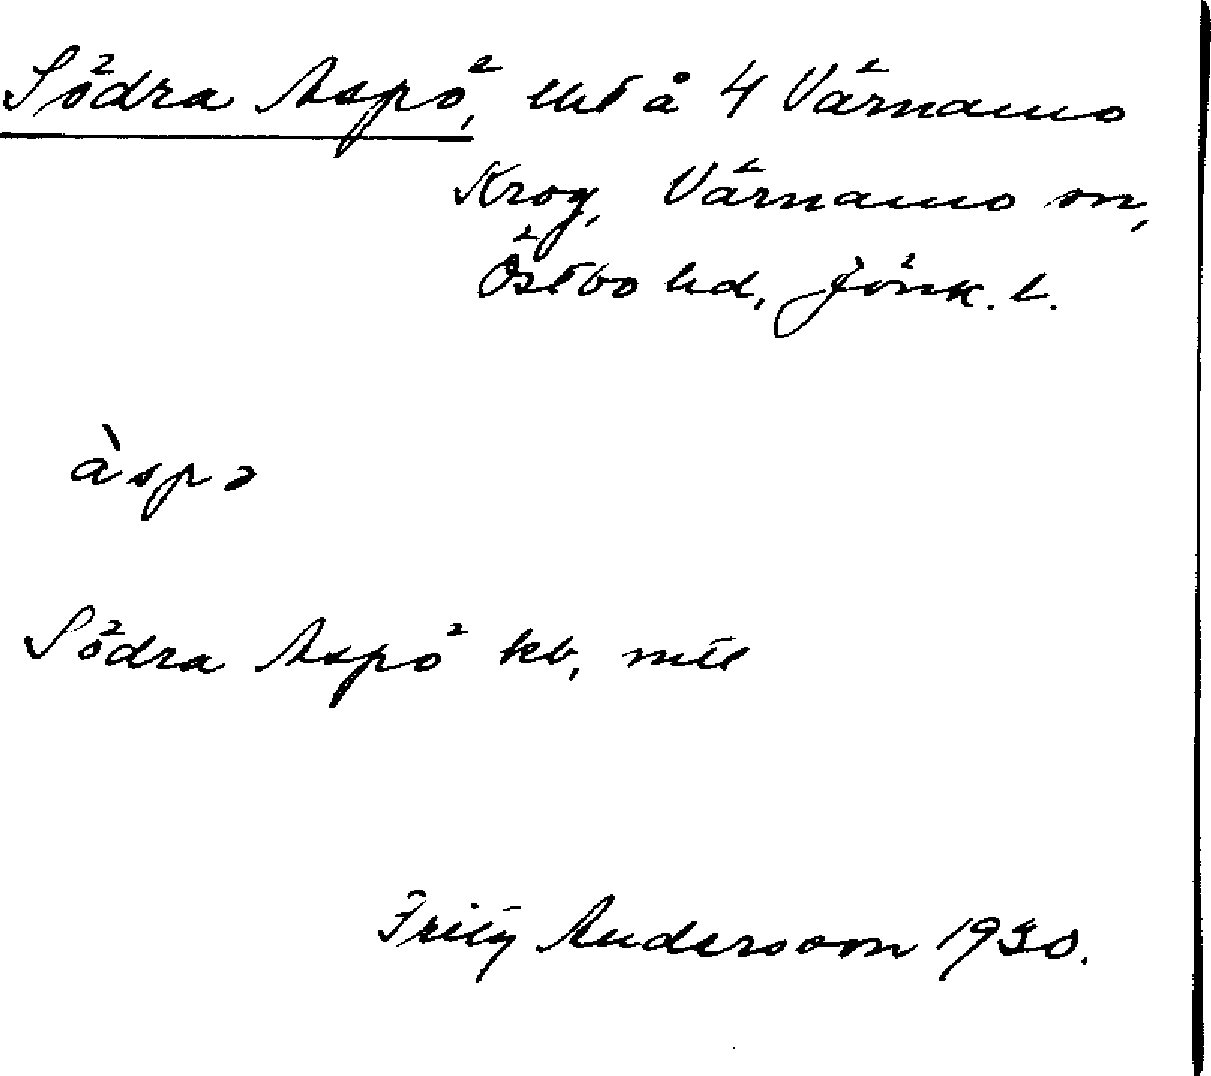 Södra Aspö, lht å 4 Värnamo
Krog, Värnamo sn,
Östbo hd, Jönk. l.
àspə
Södra Aspö kb, mtl
Fritz Andersson 1930.